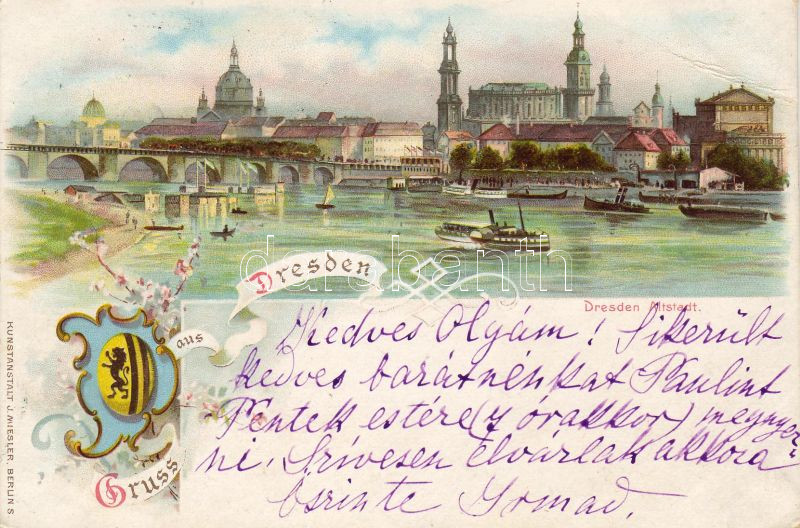 darabanth
Dresden
aus
Gruss
Dresden Altstadt.
KUNSTANSTALT J. MIESLER, BERLIN S
Kedves Olgám! Sikerült
kedves barátnénkat Paulint
Péntek estére (7 órakkor) megnyer-
ni. Szívesen elvárlak akkora
őszinte Irmad.